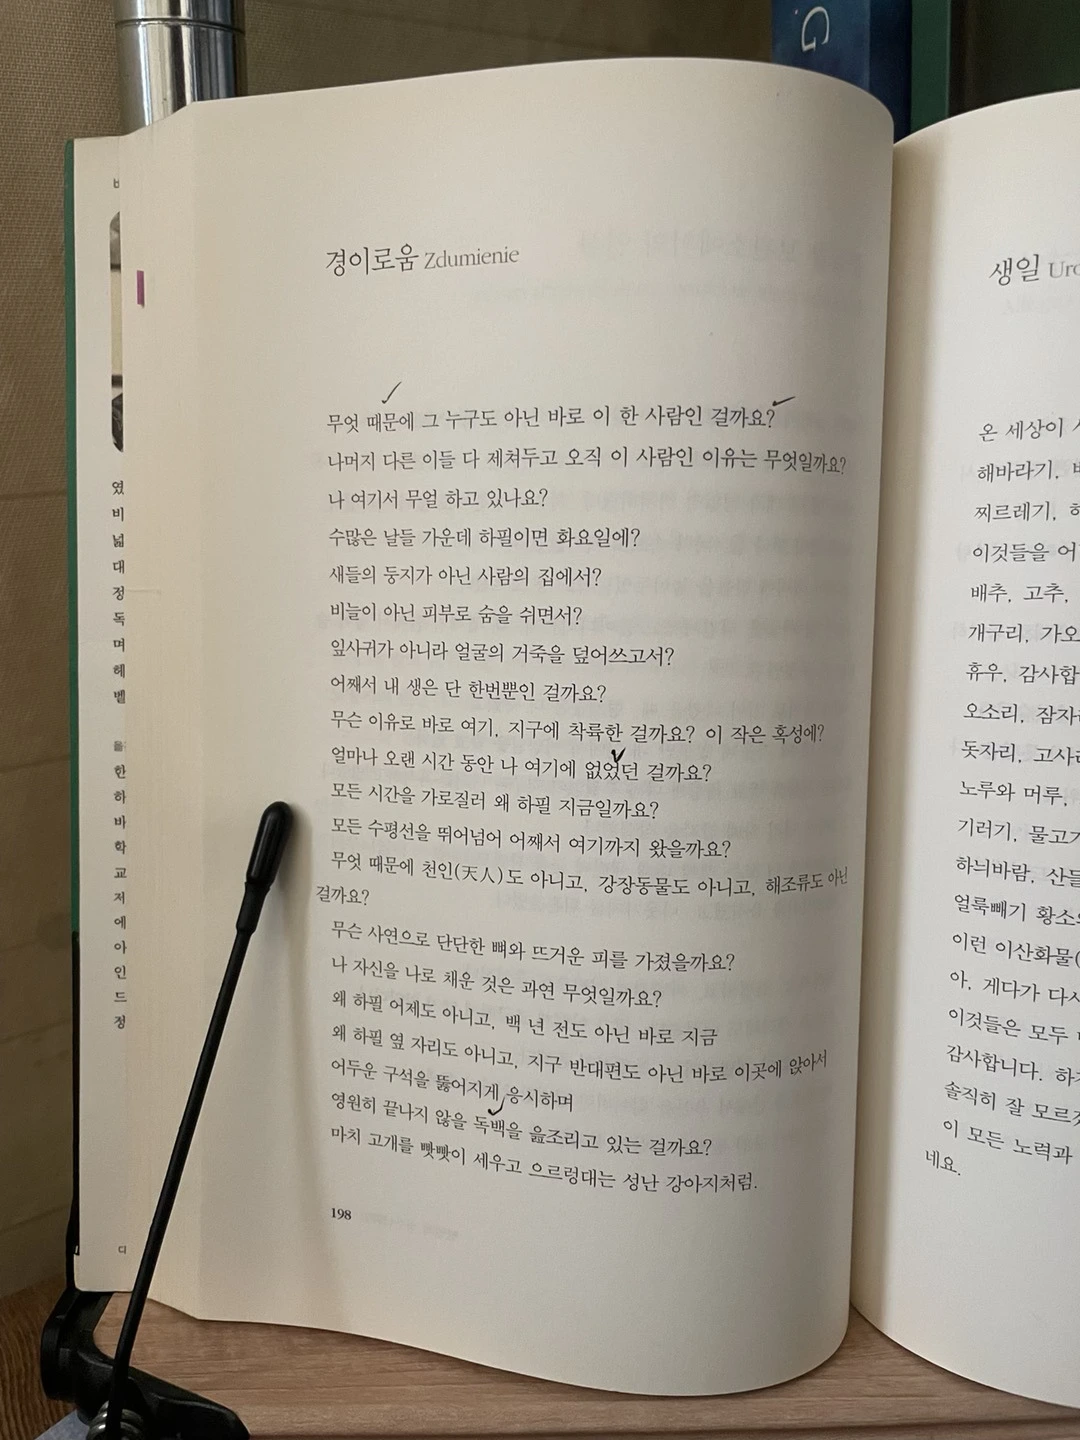 G
비
였
비
넓
대
정
독
며
헤
벨
을
한
하
바
학
교
저
에
아
인
드
정
디
경이로움 Zdumienie
무엇 때문에 그 누구도 아닌 바로 이 한 사람인 걸까요?
나머지 다른 이들 다 제쳐두고 오직 이 사람인 이유는 무엇일까요?
나 여기서 무얼 하고 있나요?
수많은 날들 가운데 하필이면 화요일에?
새들의 둥지가 아닌 사람의 집에서?
비늘이 아닌 피부로 숨을 쉬면서?
잎사귀가 아니라 얼굴의 거죽을 덮어쓰고서?
어째서 내 생은 단 한번뿐인 걸까요?
무슨 이유로 바로 여기, 지구에 착륙한 걸까요? 이 작은 혹성에?
얼마나 오랜 시간 동안 나 여기에 없었던 걸까요?
모든 시간을 가로질러 왜 하필 지금일까요?
모든 수평선을 뛰어넘어 어째서 여기까지 왔을까요?
무엇 때문에 천인(天人)도 아니고, 강장동물도 아니고, 해조류도 아닌
걸까요?
무슨 사연으로 단단한 뼈와 뜨거운 피를 가졌을까요?
나 자신을 나로 채운 것은 과연 무엇일까요?
왜 하필 어제도 아니고, 백 년 전도 아닌 바로 지금
왜 하필 옆 자리도 아니고, 지구 반대편도 아닌 바로 이곳에 앉아서
어두운 구석을 뚫어지게 응시하며
영원히 끝나지 않을 독백을 읊조리고 있는 걸까요?
마치 고개를 빳빳이 세우고 으르렁대는 성난 강아지처럼.
198
생일
온 세상이
해바라기,
찌르레기,
이것들을
배추, 고추,
개구리,
휴우,
오소리,
돗자리,
노루와 머루,
기러기,
하늬바람,
얼룩빼기
이런
아, 게다가
이것들은 모두
감사합니다.
솔직히 잘
이 모든 노력과
네요.